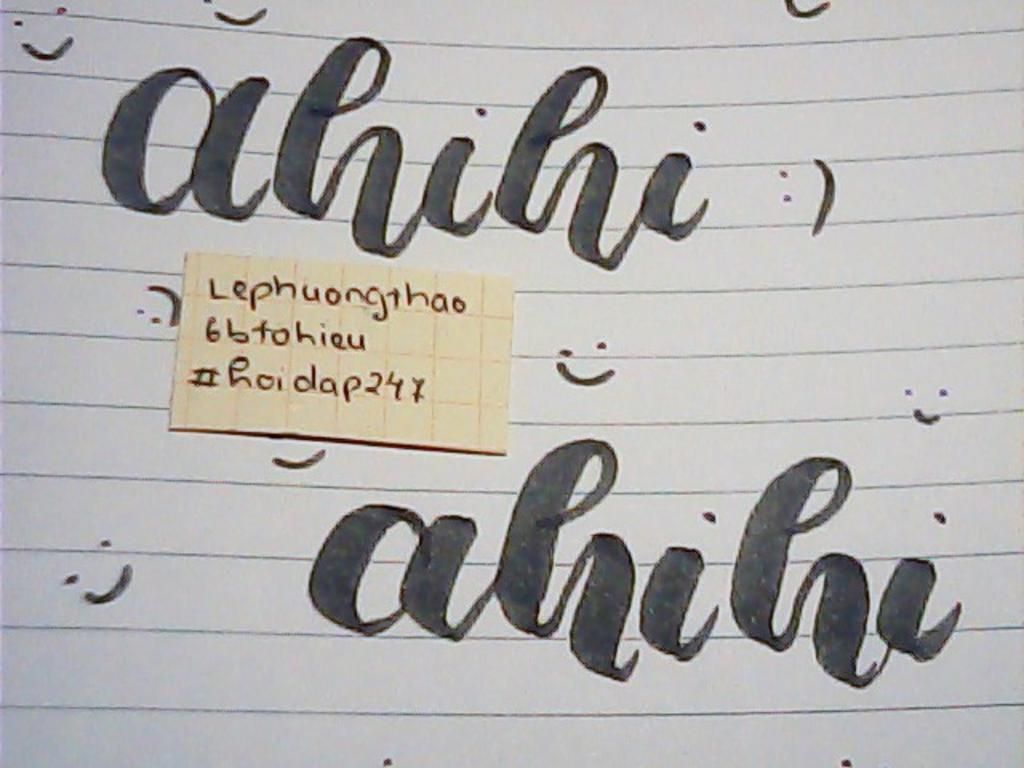 ahihi :)
Lephuongthao
6btohieu
#hoidap247
ahihi